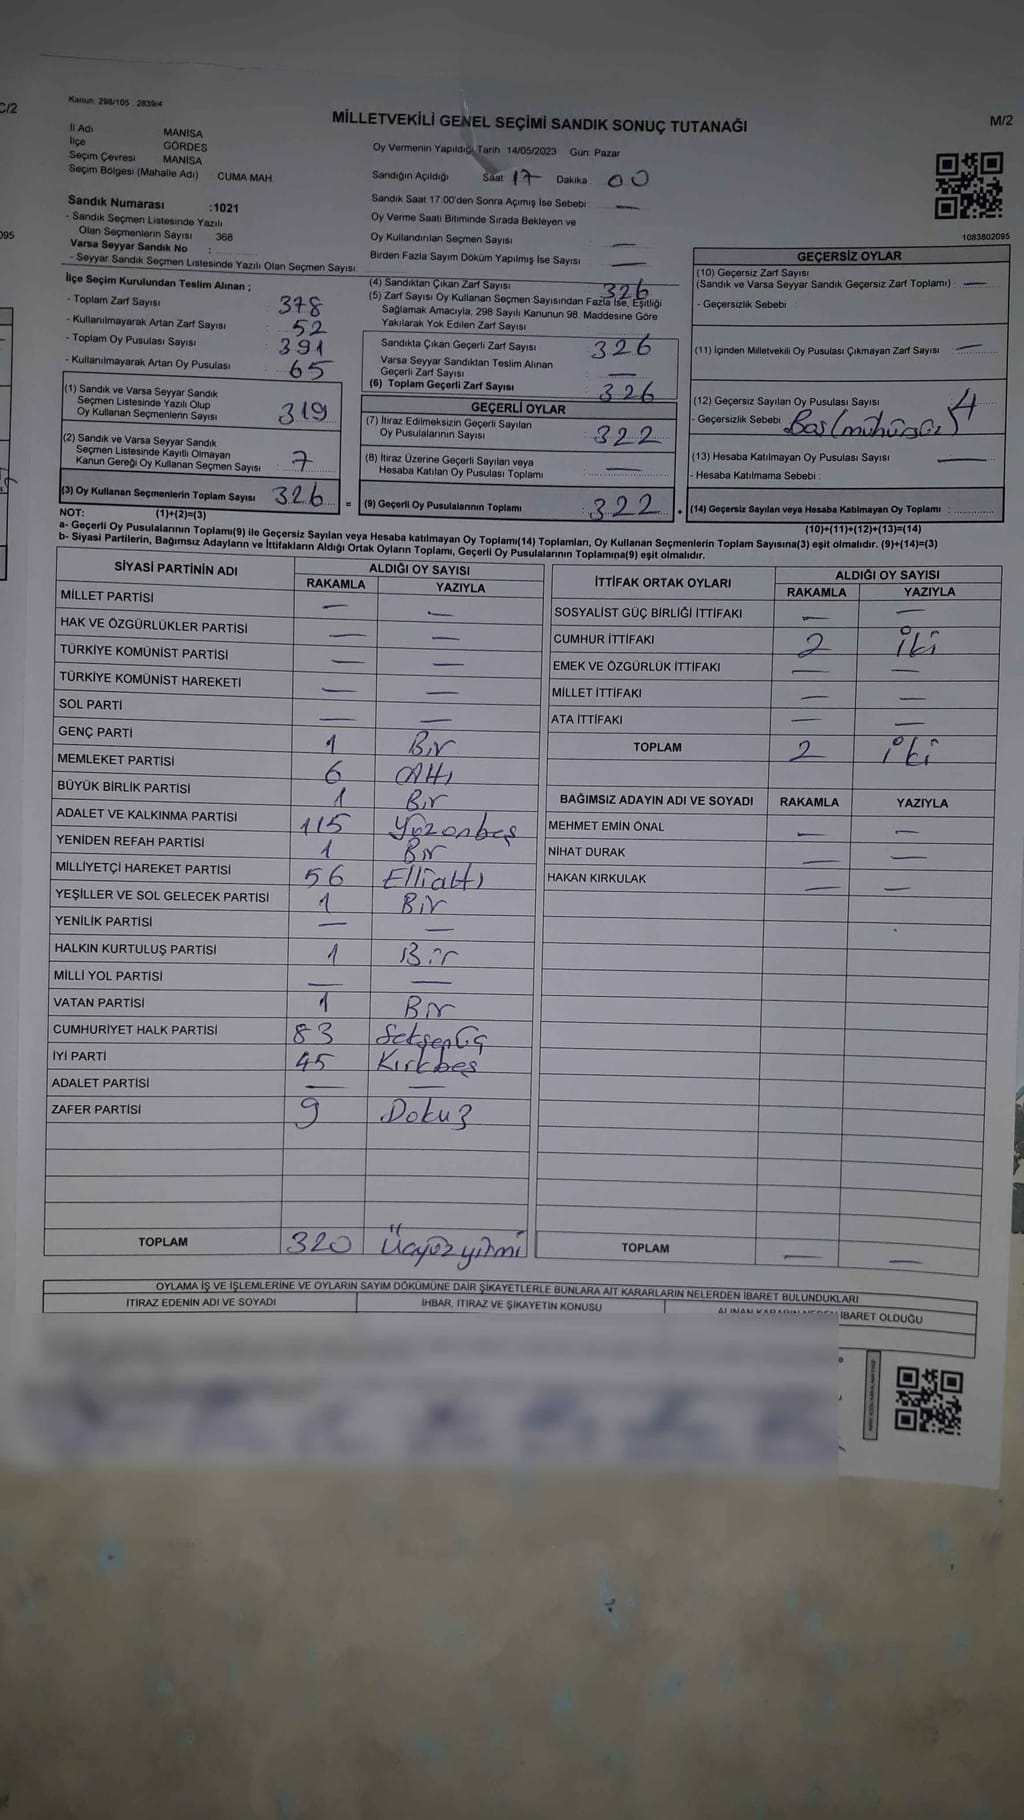 C/2
095
Kanun: 298/105 , 2839/4
MİLLETVEKİLİ GENEL SEÇİMİ SANDIK SONUÇ TUTANAĞI
M/2
İl Adı MANİSA
İlçe GÖRDES
Seçim Çevresi MANİSA
Seçim Bölgesi (Mahalle Adı) CUMA MAH.
Sandık Numarası :1021
- Sandık Seçmen Listesinde Yazılı
Olan Seçmenlerin Sayısı 368
Varsa Seyyar Sandık No :
- Seyyar Sandık Seçmen Listesinde Yazılı Olan Seçmen Sayısı:
Oy Vermenin Yapıldığı Tarih 14/05/2023 Gün: Pazar
Sandığın Açıldığı Saat 17 Dakika 00
Sandık Saat 17:00'den Sonra Açımış İse Sebebi —
Oy Verme Saati Bitiminde Sırada Bekleyen ve
Oy Kullandırılan Seçmen Sayısı —
Birden Fazla Sayım Döküm Yapılmış İse Sayısı —
1083802095
İlçe Seçim Kurulundan Teslim Alınan ;
- Toplam Zarf Sayısı : 378
- Kullanılmayarak Artan Zarf Sayısı : 52
- Toplam Oy Pusulası Sayısı : 391
- Kullanılmayarak Artan Oy Pusulası : 65
(1) Sandık ve Varsa Seyyar Sandık
Seçmen Listesinde Yazılı Olup
Oy Kullanan Seçmenlerin Sayısı : 319
(2) Sandık ve Varsa Seyyar Sandık
Seçmen Listesinde Kayıtlı Olmayan
Kanun Gereği Oy Kullanan Seçmen Sayısı : 7
(3) Oy Kullanan Seçmenlerin Toplam Sayısı 326 =
(4) Sandıktan Çıkan Zarf Sayısı : 326
(5) Zarf Sayısı Oy Kullanan Seçmen Sayısından Fazla İse, Eşitliği
Sağlamak Amacıyla, 298 Sayılı Kanunun 98. Maddesine Göre
Yakılarak Yok Edilen Zarf Sayısı :
Sandıkta Çıkan Geçerli Zarf Sayısı : 326
Varsa Seyyar Sandıktan Teslim Alınan
Geçerli Zarf Sayısı : —
(6) Toplam Geçerli Zarf Sayısı : 326
GEÇERLİ OYLAR
(7) İtiraz Edilmeksizin Geçerli Sayılan
Oy Pusulalarının Sayısı : 322
(8) İtiraz Üzerine Geçerli Sayılan veya
Hesaba Katılan Oy Pusulası Toplamı : —
(9) Geçerli Oy Pusulalarının Toplamı : 322
GEÇERSİZ OYLAR
(10) Geçersiz Zarf Sayısı
(Sandık ve Varsa Seyyar Sandık Geçersiz Zarf Toplamı) : —
- Geçersizlik Sebebi :
(11) İçinden Milletvekili Oy Pusulası Çıkmayan Zarf Sayısı : —
(12) Geçersiz Sayılan Oy Pusulası Sayısı : 4
- Geçersizlik Sebebi
(13) Hesaba Katılmayan Oy Pusulası Sayısı : —
- Hesaba Katılmama Sebebi :
(14) Geçersiz Sayılan veya Hesaba Katılmayan Oy Toplamı :
NOT: (1)+(2)=(3)
(10)+(11)+(12)+(13)=(14)
a- Geçerli Oy Pusulalarının Toplamı(9) ile Geçersiz Sayılan veya Hesaba katılmayan Oy Toplamı(14) Toplamları, Oy Kullanan Seçmenlerin Toplam Sayısına(3) eşit olmalıdır. (9)+(14)=(3)
b- Siyasi Partilerin, Bağımsız Adayların ve İttifakların Aldığı Ortak Oyların Toplamı, Geçerli Oy Pusulalarının Toplamına(9) eşit olmalıdır.
SİYASİ PARTİNİN ADI ALDIĞI OY SAYISI
RAKAMLA YAZIYLA
MİLLET PARTİSİ — —
HAK VE ÖZGÜRLÜKLER PARTİSİ — —
TÜRKİYE KOMÜNİST PARTİSİ — —
TÜRKİYE KOMÜNİST HAREKETİ — —
SOL PARTİ — —
GENÇ PARTİ 1 Bir
MEMLEKET PARTİSİ 6 Altı
BÜYÜK BİRLİK PARTİSİ 1 Bir
ADALET VE KALKINMA PARTİSİ 115 Yüzonbeş
YENİDEN REFAH PARTİSİ 1 Bir
MİLLİYETÇİ HAREKET PARTİSİ 56 Ellialtı
YEŞİLLER VE SOL GELECEK PARTİSİ 1 Bir
YENİLİK PARTİSİ — —
HALKIN KURTULUŞ PARTİSİ 1 Bir
MİLLİ YOL PARTİSİ — —
VATAN PARTİSİ 1 Bir
CUMHURİYET HALK PARTİSİ 83 Seksenüç
İYİ PARTİ 45 Kırkbeş
ADALET PARTİSİ — —
ZAFER PARTİSİ 9 Dokuz
TOPLAM 320 Üçyüzyirmi
İTTİFAK ORTAK OYLARI ALDIĞI OY SAYISI
RAKAMLA YAZIYLA
SOSYALİST GÜÇ BİRLİĞİ İTTİFAKI — —
CUMHUR İTTİFAKI 2 iki
EMEK VE ÖZGÜRLÜK İTTİFAKI — —
MİLLET İTTİFAKI — —
ATA İTTİFAKI — —
TOPLAM 2 iki
BAĞIMSIZ ADAYIN ADI VE SOYADI RAKAMLA YAZIYLA
MEHMET EMİN ÖNAL — —
NİHAT DURAK — —
HAKAN KIRKULAK — —
TOPLAM — —
OYLAMA İŞ VE İŞLEMLERİNE VE OYLARIN SAYIM DÖKÜMÜNE DAİR ŞİKAYETLERLE BUNLARA AİT KARARLARIN NELERDEN İBARET BULUNDUKLARI
İTİRAZ EDENİN ADI VE SOYADI İHBAR, İTİRAZ VE ŞİKAYETİN KONUSU ALINAN KARARIN NEDEN İBARET OLDUĞU